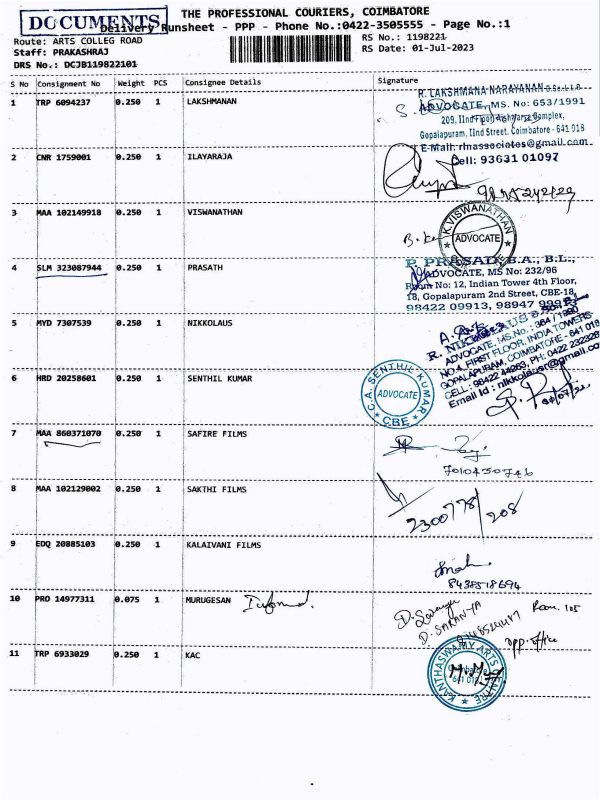 DOCUMENTS
THE PROFESSIONAL COURIERS, COIMBATORE
Delivery Runsheet - PPP - Phone No.:0422-3505555 - Page No.:1
Route: ARTS COLLEG ROAD
Staff: PRAKASHRAJ
DRS No.: DCJB119822101
RS No.: 1198221
RS Date: 01-Jul-2023
S No Consignment No Weight PCS Consignee Details Signature
1 TRP 6094237 0.250 1 LAKSHMANAN
R. LAKSHMANA NARAYANAN B.Sc., L.L.B.
ADVOCATE, MS. No: 653/1991
209, IInd Floor, Complex,
Gopalapuram, IInd Street, Coimbatore - 641 018
E-Mail: rlnassociates@gmail.com
Cell: 93631 01097
2 CNR 1759001 0.250 1 ILAYARAJA
3 MAA 102149918 0.250 1 VISWANATHAN
K. VISWANATHAN
ADVOCATE
4 SLM 323087944 0.250 1 PRASATH
P. PRASAD, B.A., B.L.,
ADVOCATE, MS No: 232/96
Room No: 12, Indian Tower 4th Floor,
18, Gopalapuram 2nd Street, CBE-18,
98422 09913, 98947
5 MYD 7307539 0.250 1 NIKKOLAUS
R. NIKKOLAUS
ADVOCATE, MS.No: 364/1990
NO.4, FIRST FLOOR, INDIA TOWERS
GOPALAPURAM, COIMBATORE - 641 018
CELL: 98422 44263, PH: 0422
Email Id : nikkolausr@gmail.co
6 HRD 20258601 0.250 1 SENTHIL KUMAR
C.A. SENTHIL KUMAR
ADVOCATE
CBE
7 MAA 860371070 0.250 1 SAFIRE FILMS
7010450746
8 MAA 102129002 0.250 1 SAKTHI FILMS
2300778/208
9 EDQ 20885103 0.250 1 KALAIVANI FILMS
8438518694
10 PRO 14977311 0.075 1 MURUGESAN Informed.
D. SARANYA
Room. 105
opp. office
11 TRP 6933029 0.250 1 KAC
KANTHASWAMY ARTS CENTRE